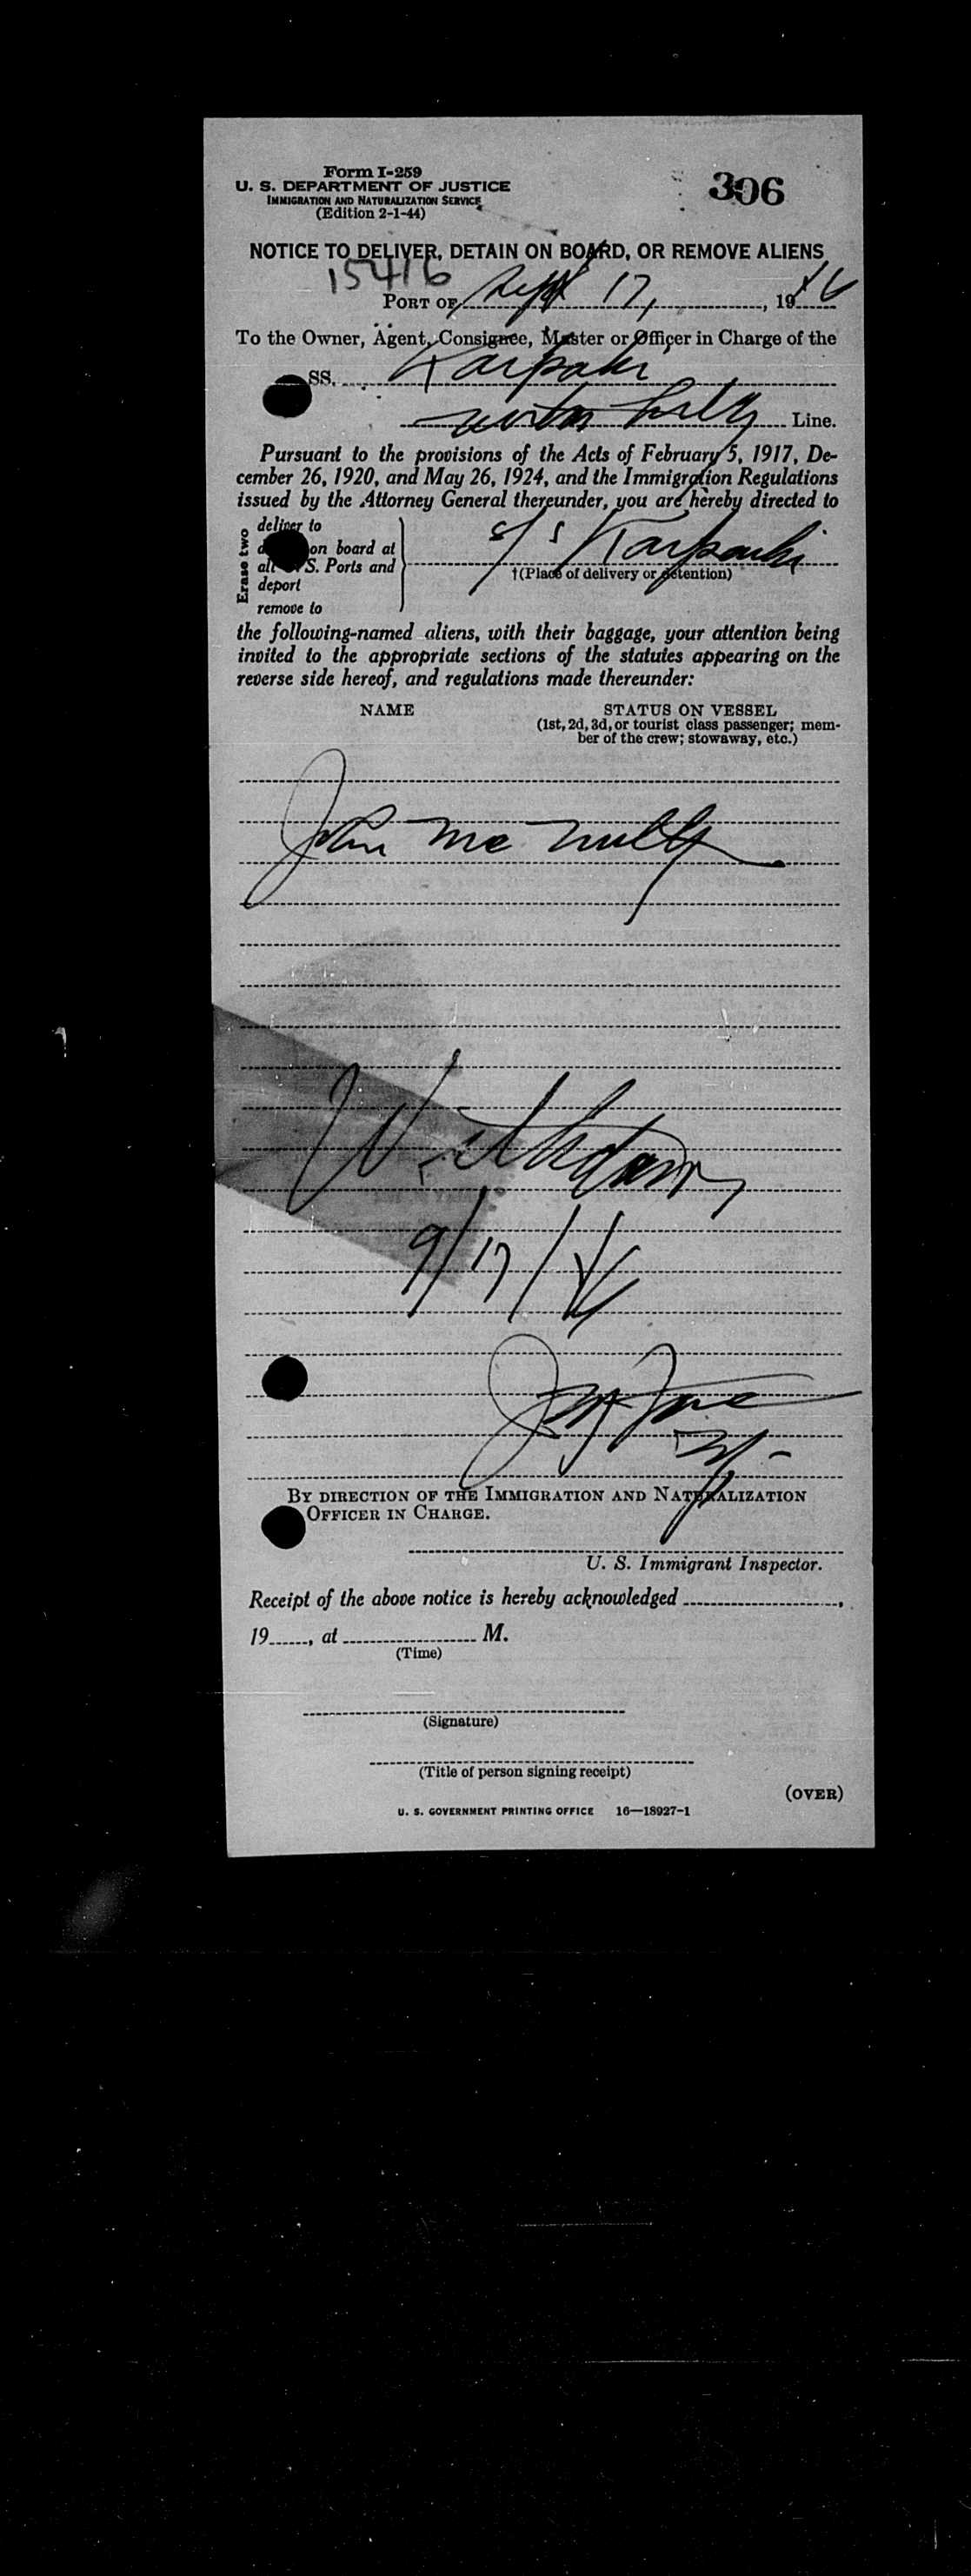 Form I-259
U. S. DEPARTMENT OF JUSTICE
IMMIGRATION AND NATURALIZATION SERVICE
(Edition 2-1-44)
306
NOTICE TO DELIVER, DETAIN ON BOARD, OR REMOVE ALIENS
15416
PORT OF Sept 17, , 1946
To the Owner, Agent, Consignee, Master or Officer in Charge of the
SS.
Norton Lilly Line.
Pursuant to the provisions of the Acts of February 5, 1917, De-
cember 26, 1920, and May 26, 1924, and the Immigration Regulations
issued by the Attorney General thereunder, you are hereby directed to
Erase two
deliver to
on board at
S. Ports and
deport
remove to
S/S
†(Place of delivery or detention)
the following-named aliens, with their baggage, your attention being
invited to the appropriate sections of the statutes appearing on the
reverse side hereof, and regulations made thereunder:
NAME
STATUS ON VESSEL
(1st, 2d, 3d, or tourist class passenger; mem-
ber of the crew; stowaway, etc.)
John Mc Nulty
Withdrawn
9/17/46
BY DIRECTION OF THE IMMIGRATION AND NATURALIZATION
OFFICER IN CHARGE.
U. S. Immigrant Inspector.
Receipt of the above notice is hereby acknowledged ,
19 , at M.
(Time)
(Signature)
(Title of person signing receipt)
(OVER)
U. S. GOVERNMENT PRINTING OFFICE 16—18927-1